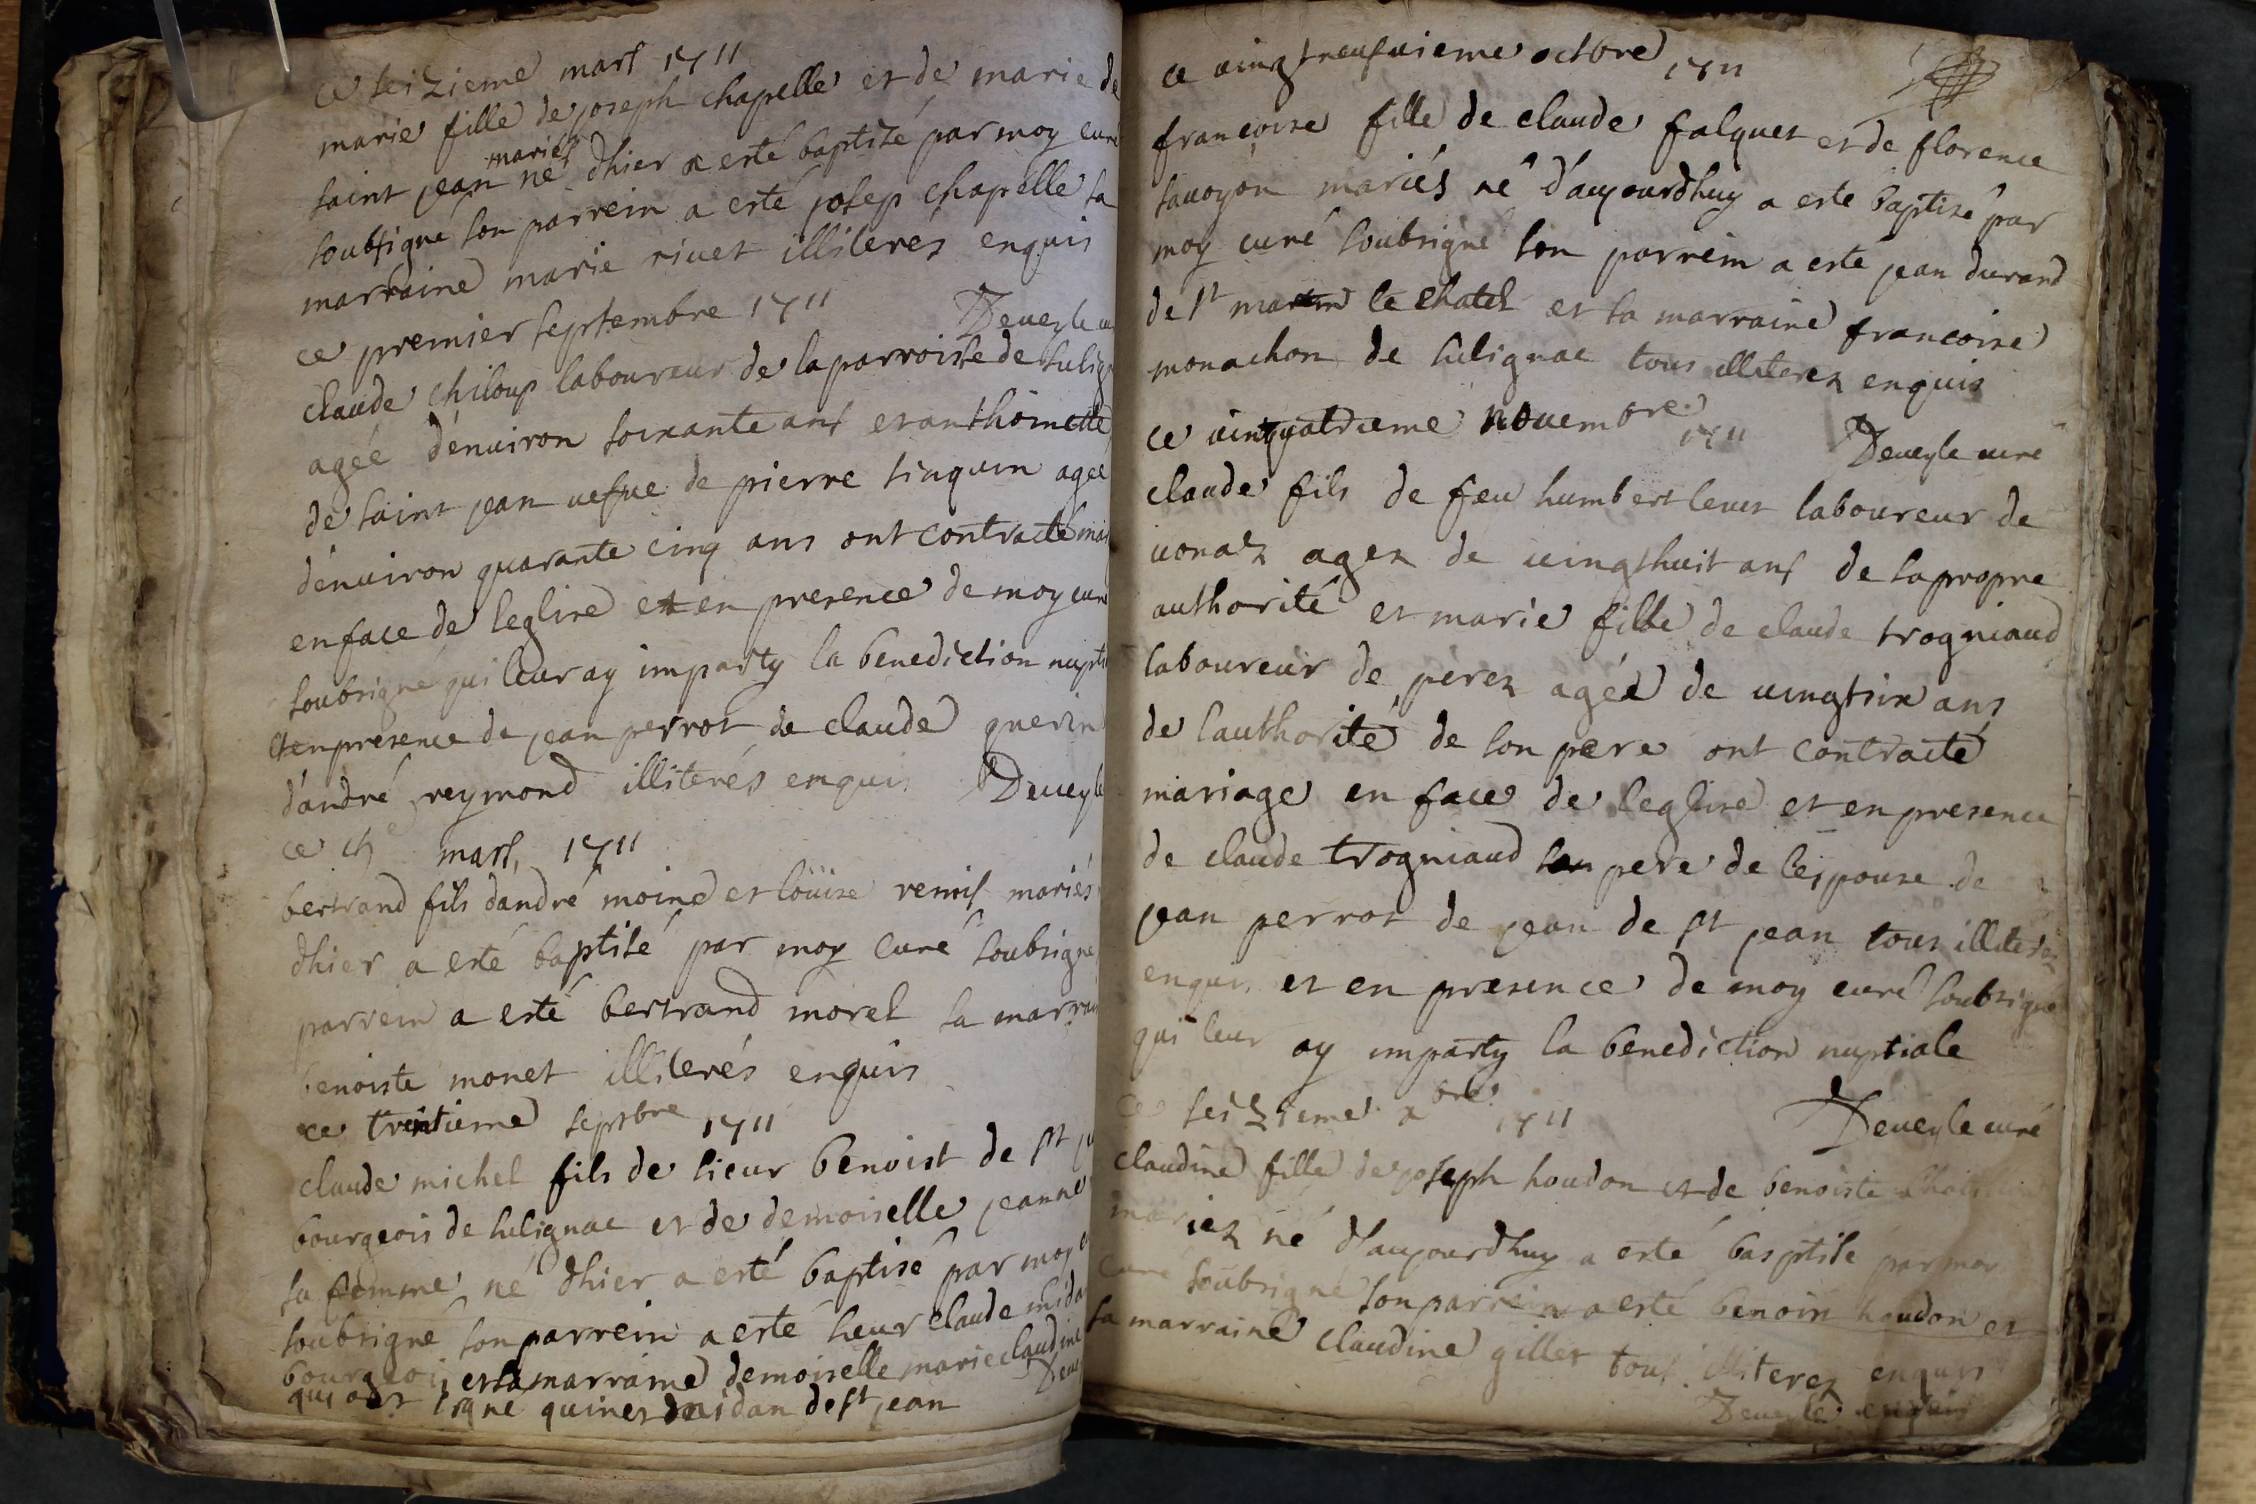 ce seizieme mars 1711
marie fille de joseph chapelle et de marie de
saint jean mariés né dhier a esté baptisé par moy curé
soubsigné son parrein a esté josep chapelle sa
marraine marie rivet illiterés enquis
ce premier septembre 1711 Deveyle cu
claude chiloup laboureur de la parroisse de sulign
agée d'environ soixante ans et anthoinette
de saint jean vefve de pierre sinquin agee
d'environ quarante cinq ans ont contracté mar
en face de leglise et en presence de moy curé
soubsigné qui leur ay imparty la benediction nupti
et en presence de jean perrot de claude guerin
d'andré reymond illiterés enquis Deveyle
ce mars 1711
bertrand fils dandré moine et loüise remis mariés
dhier a esté baptisé par moy curé soubsigné
parrein a esté bertrand morel sa marrai
benoiste monet illiterés enquis
ce trentieme septbre 1711
claude michel fils de sieur benoist de st je
bourgeois de sulignac et de demoiselle jeanne
sa femme né dhier a esté baptisé par moy c
soubsigné son parrein a esté sieur claude midan
bourgeois et sa marraine demoiselle marie claudine
qui ont signé quinet midan de st jean Deve
ce vingtneufvieme octbre 1711
francoise fille de claude falquet et de florence
savoyon mariés né d'aujourdhuy a esté baptisé par
moy curé soubsigné son parrein a esté jean durand
de st martin le chatel et sa marraine francoise
monachon de sulignac tous illiterez enquis
ce vintquatrieme novembre 1711 Deveyle curé
claude fils de feu humbert levet laboureur de
vonaz agez de vingthuit ans de sa propre
authorité et marie fille de claude trogniaud
laboureur de perez agéé de vingtsix ans
de l'authorité de son pere ont contracté
mariage en face de leglise et en presence
de claude trogniaud son pere de lespouse de
jean perrot de jean de st jean tous illiterez
enquis et en presence de moy curé soubsigné
qui leur ay imparty la benediction nuptiale
ce seizieme xbre 1711 Deveyle curé
claudine fille de joseph houdon et de benoiste
mariez né d'aujourdhuy a esté basptisé par moy
curé soubsigné son parrein a esté benoin houdon et
sa marraine claudine gillet tous illiterez enquis
Deveyle enquis